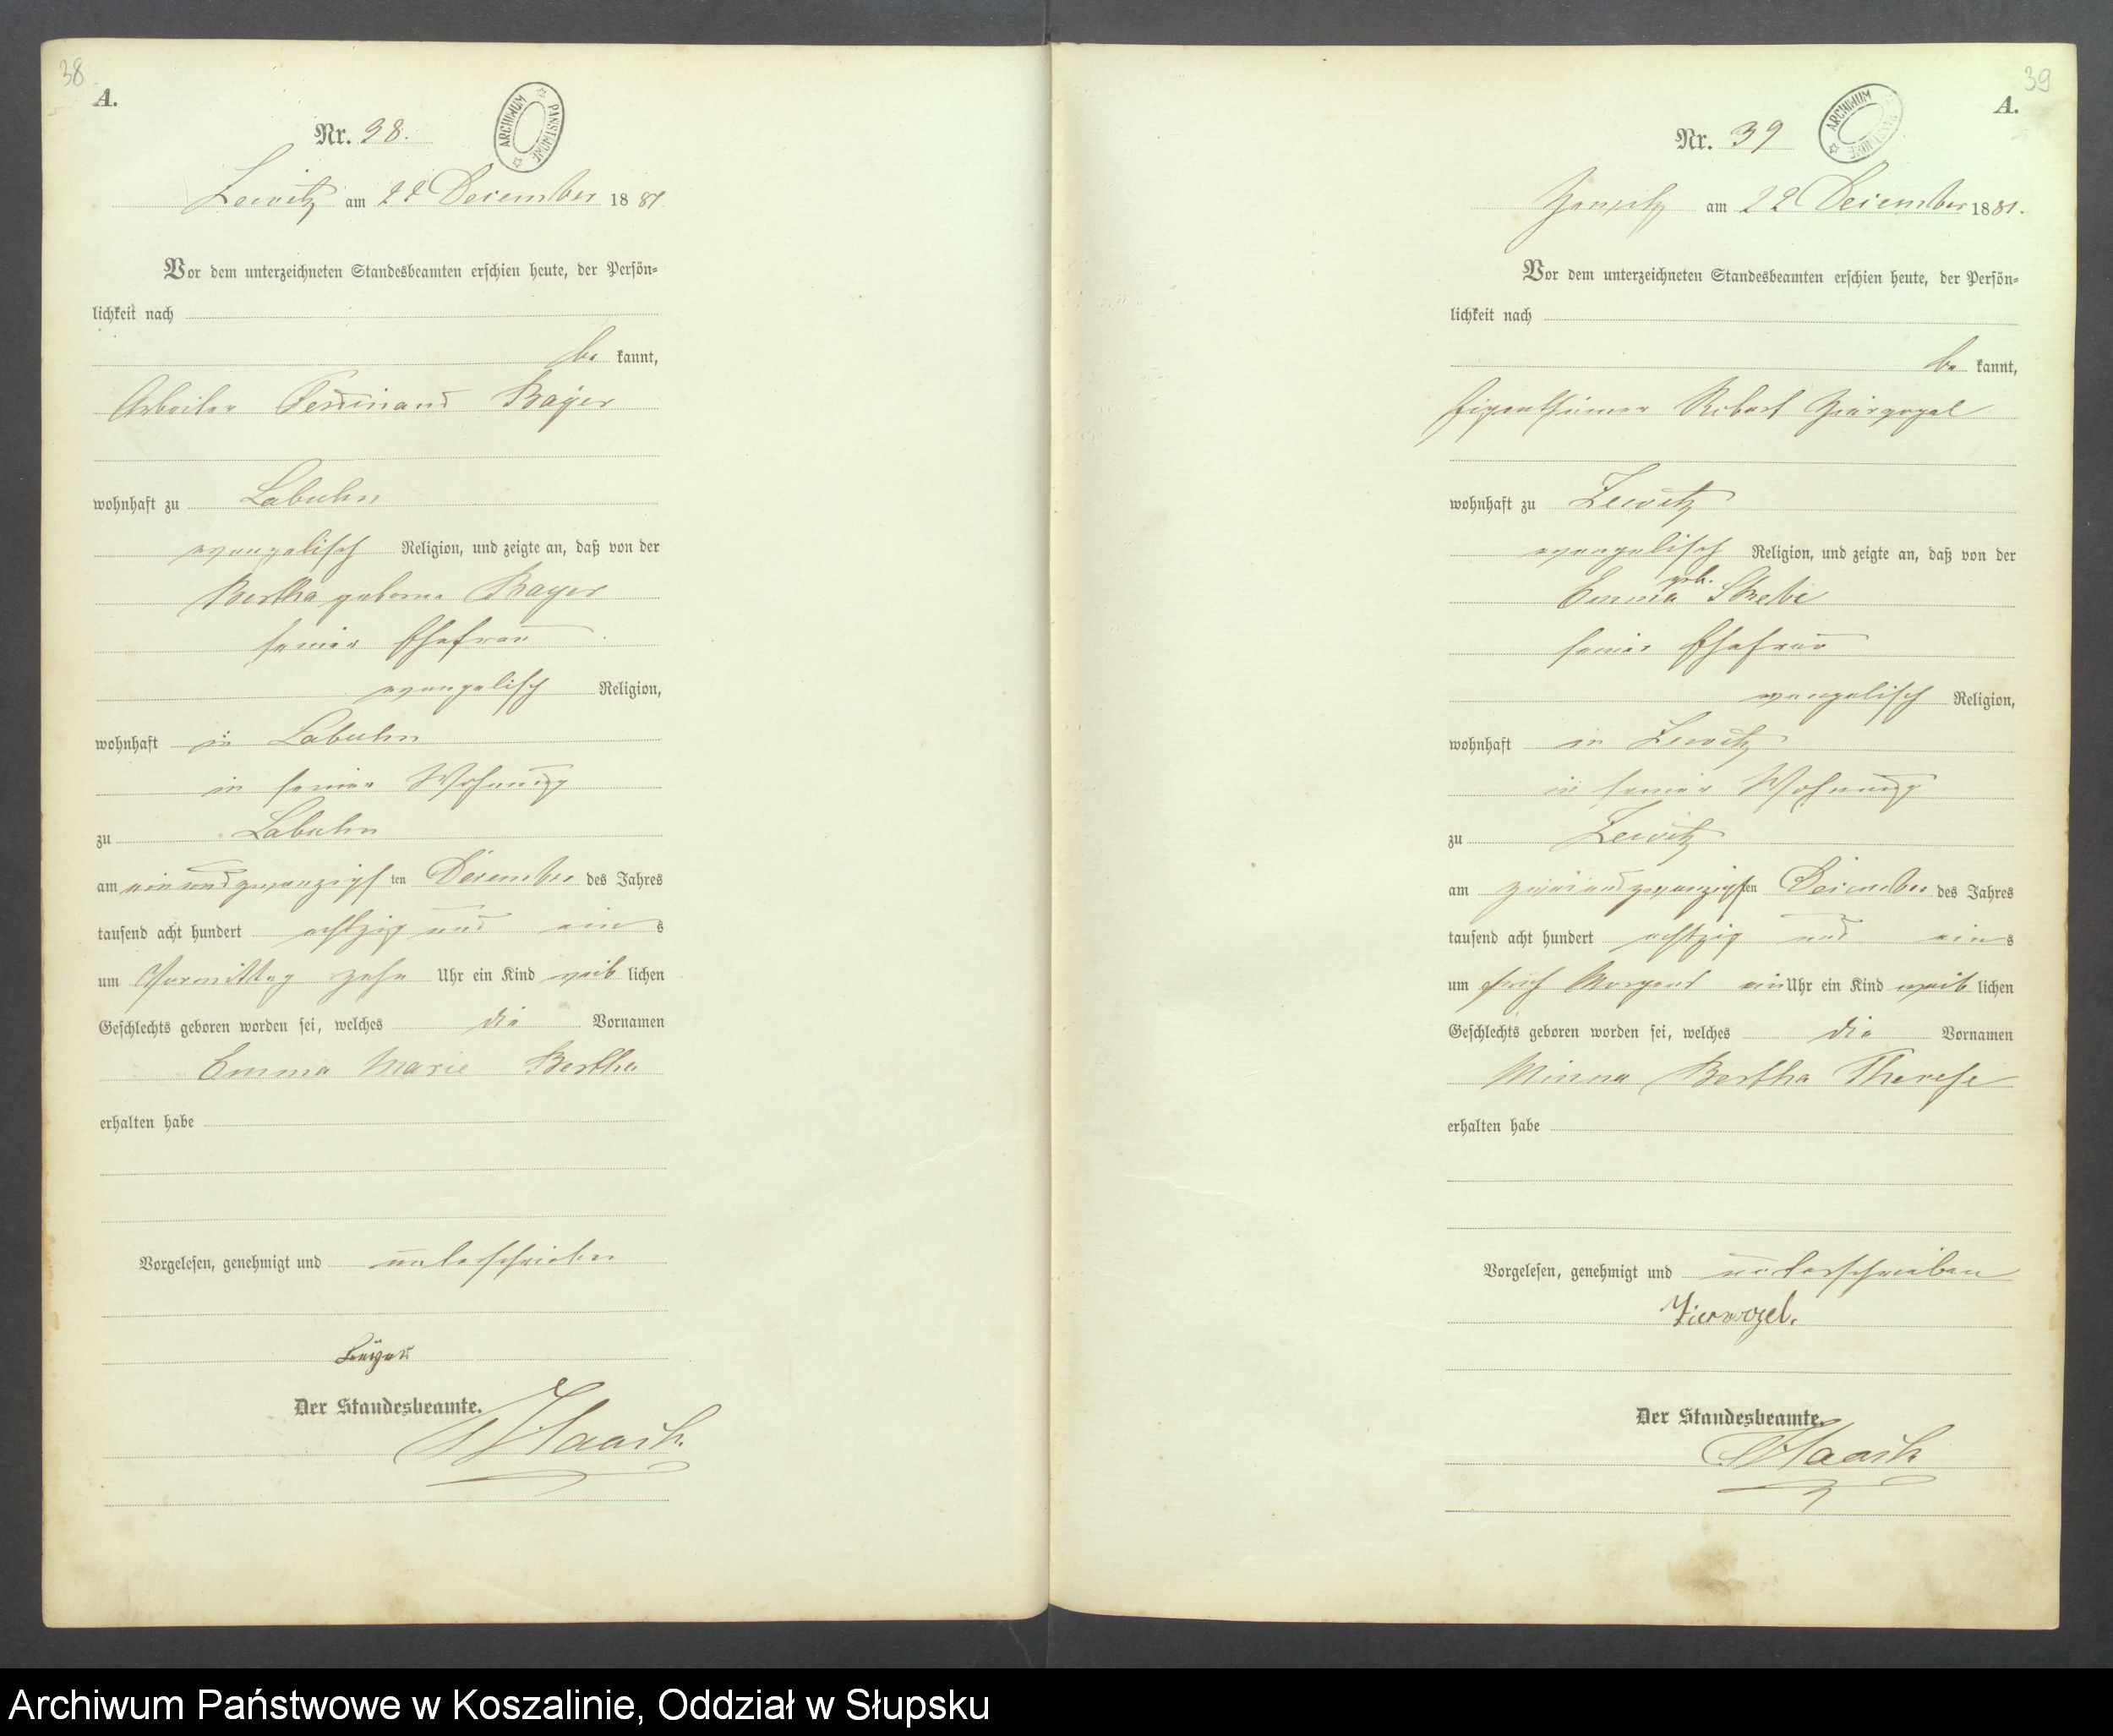 38
A.
Nr. 38.
ARCHIWUM PAŃSTWOWE
Zewitz am 22 December 1881.
Vor dem unterzeichneten Standesbeamten erschien heute, der Persön=
lichkeit nach
be kannt,
Arbeiter Ferdinand Bayer
wohnhaft zu Labuhn
evangelisch Religion, und zeigte an, daß von der
Bertha geborne Bayer
seiner Ehefrau
evangelisch Religion,
wohnhaft in Labuhn
in seiner Wohnung
zu Labuhn
am ein und zwanzigsten December des Jahres
tausend acht hundert achtzig und eins
um Vormittag zehn Uhr ein Kind weiblichen
Geschlechts geboren worden sei, welches die Vornamen
Emma Marie Bertha
erhalten habe
Vorgelesen, genehmigt und unterschrieben
Der Standesbeamte.
39
A.
Nr. 39
ARCHIWUM PAŃSTWOWE
Zewitz am 22 December 1881.
Vor dem unterzeichneten Standesbeamten erschien heute, der Persön=
lichkeit nach
be kannt,
Eigenthümer Robert Ziervogel
wohnhaft zu Zewitz
evangelisch Religion, und zeigte an, daß von der
Emma geb.
seiner Ehefrau
evangelisch Religion,
wohnhaft in Zewitz
in seiner Wohnung
zu Zewitz
am zwei und zwanzigsten December des Jahres
tausend acht hundert achtzig und eins
um früh Morgens ein Uhr ein Kind weiblichen
Geschlechts geboren worden sei, welches die Vornamen
Minna Bertha Therese
erhalten habe
Vorgelesen, genehmigt und unterschrieben
Ziervogel.
Der Standesbeamte.
Archiwum Państwowe w Koszalinie, Oddział w Słupsku